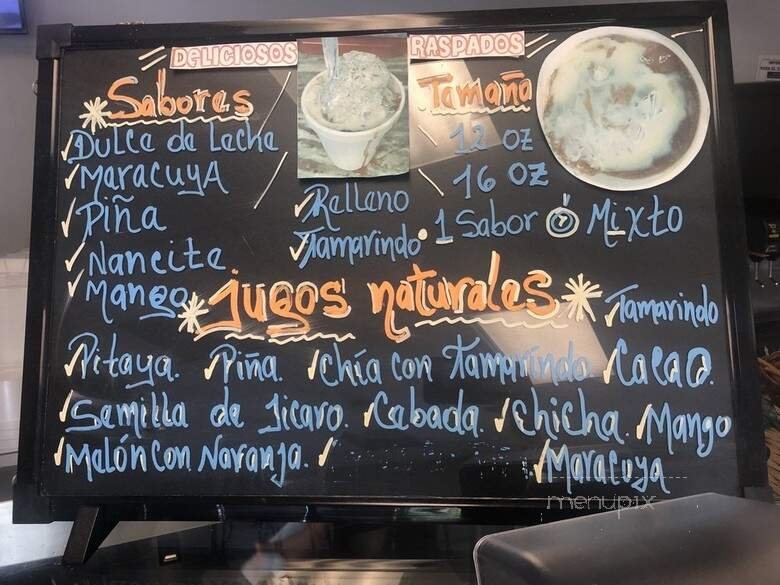 DELICIOSOS RASPADOS
Sabores
Dulce de Leche
Maracuya
Piña
Nancite
Mango
Relleno
Tamarindo
Tamaño
12 oz
16 oz
1 Sabor ó Mixto
jugos naturales
Tamarindo
Pitaya. Piña. Chía con Tamarindo. Cacao.
Semilla de Jicaro. Cebada. Chicha. Mango
Malón con Naranja. Maracuya
menupix